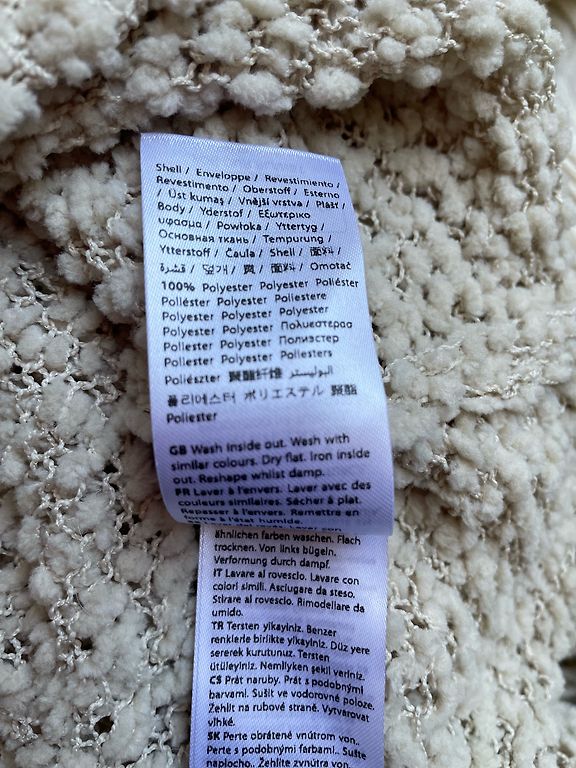 Shell / Enveloppe / Revestimiento /
Revestimento / Oberstoff / Esterno
/ Üst kumaş / Vnější vrstva / Plášť /
Body / Yderstof / Εξωτερικο
υφασμα / Powłoka / Yttertyg /
Основная ткань / Tempurung /
Ytterstoff / Čaula / Shell / 面料 /
قشرة / 겉개 / 質 / 面料 / Omotač
100% Polyester Polyester Poliéster
Poliéster Polyester Poliestere
Polyester Polyester Polyester
Polyester Polyester Πολυεστερας
Poliester Polyester Полиэстер
Poliester Polyester Poliesters
Poliészter 聚酯纤维 البوليستر
폴리에스터 ポリエステル 聚酯
Poliester
GB Wash inside out. Wash with
similar colours. Dry flat. Iron inside
out. Reshape whilst damp.
FR Laver à l'envers. Laver avec des
couleurs similaires. Sécher à plat.
Repasser à l'envers. Remettre en
forme à l'état humide.
ähnlichen farben waschen. Flach
trocknen. Von links bügeln.
Verformung durch dampf.
IT Lavare al rovescio. Lavare con
colori simili. Asciugare da steso.
Stirare al rovescio. Rimodellare da
umido.
TR Tersten yikayiniz. Benzer
renklerle birlikte yikayiniz. Düz yere
sererek kurutunuz. Tersten
ütüleyiniz. Nemliyken şekil veriniz.
CS Prát naruby. Prát s podobnými
barvami. Sušit ve vodorovné poloze.
Žehlit na rubové straně. Vytvarovat
vlhké.
SK Perte obrátené vnútrom von..
Perte s podobnými farbami.. Sušte
naplocho.. Žehlite zvnútra von.